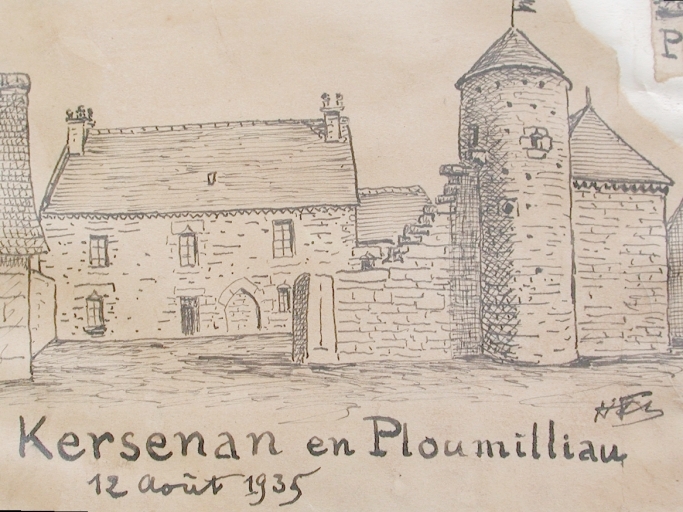 Kersenan en Ploumilliau
12 Août 1935